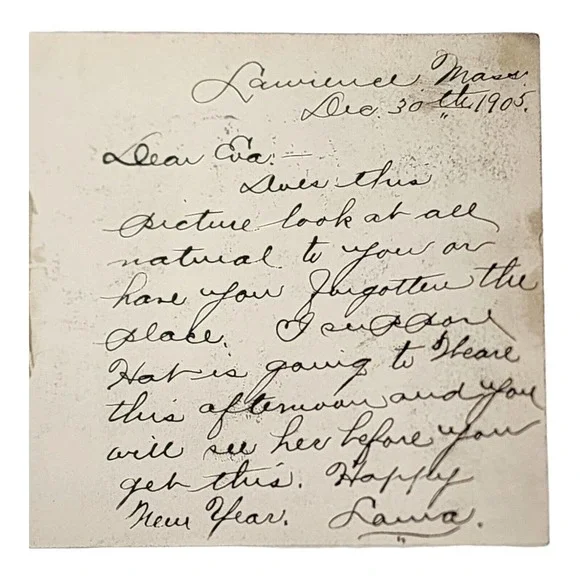 Lawrence Mass
Dec. 30th 1905.
Dear Eva.—
Does this
picture look at all
natural to you or
have you forgotten the
place. I suppose
Hat is going to
this afternoon and you
will see her before you
get this. Happy
New Year. Laura.